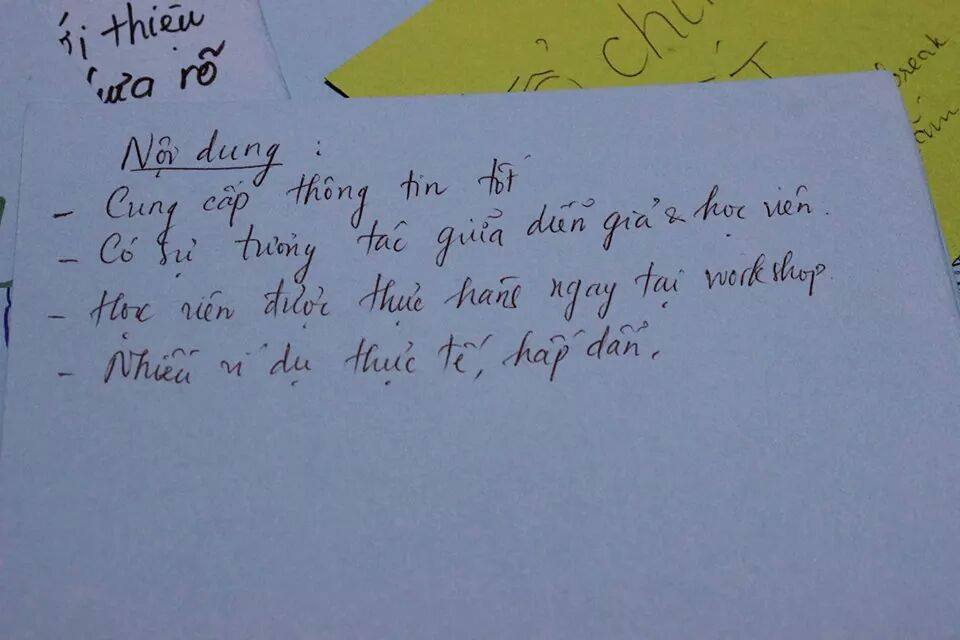 thiệu
rõ
Nội dung :
- Cung cấp thông tin tốt
- Có sự tương tác giữa diễn giả & học viên.
- Học viên được thực hành ngay tại workshop.
- Nhiều ví dụ thực tế, hấp dẫn.
break